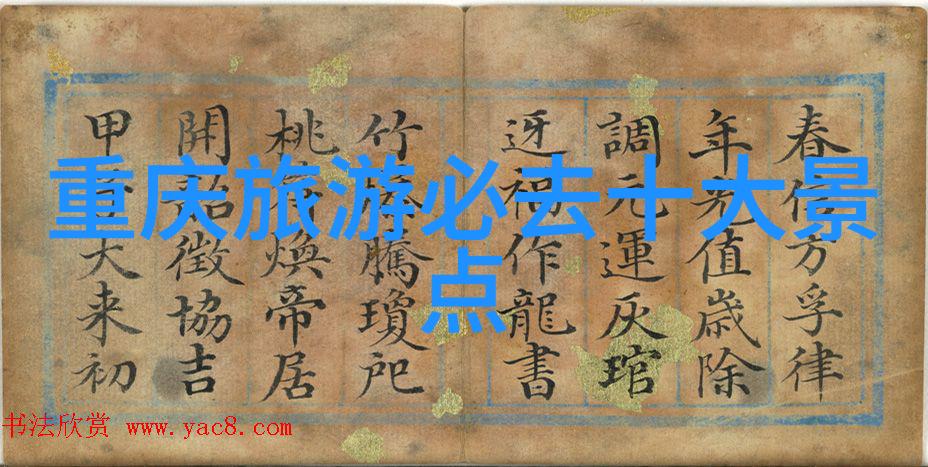 春信方孚律
年光值歲除
調元運灰琯
迓作龍書
竹騰瓊戺
桃符煥帝居
開韶徵協吉
甲大来初
重庆旅游必去十大景
点
书法欣赏 www.yac8.com